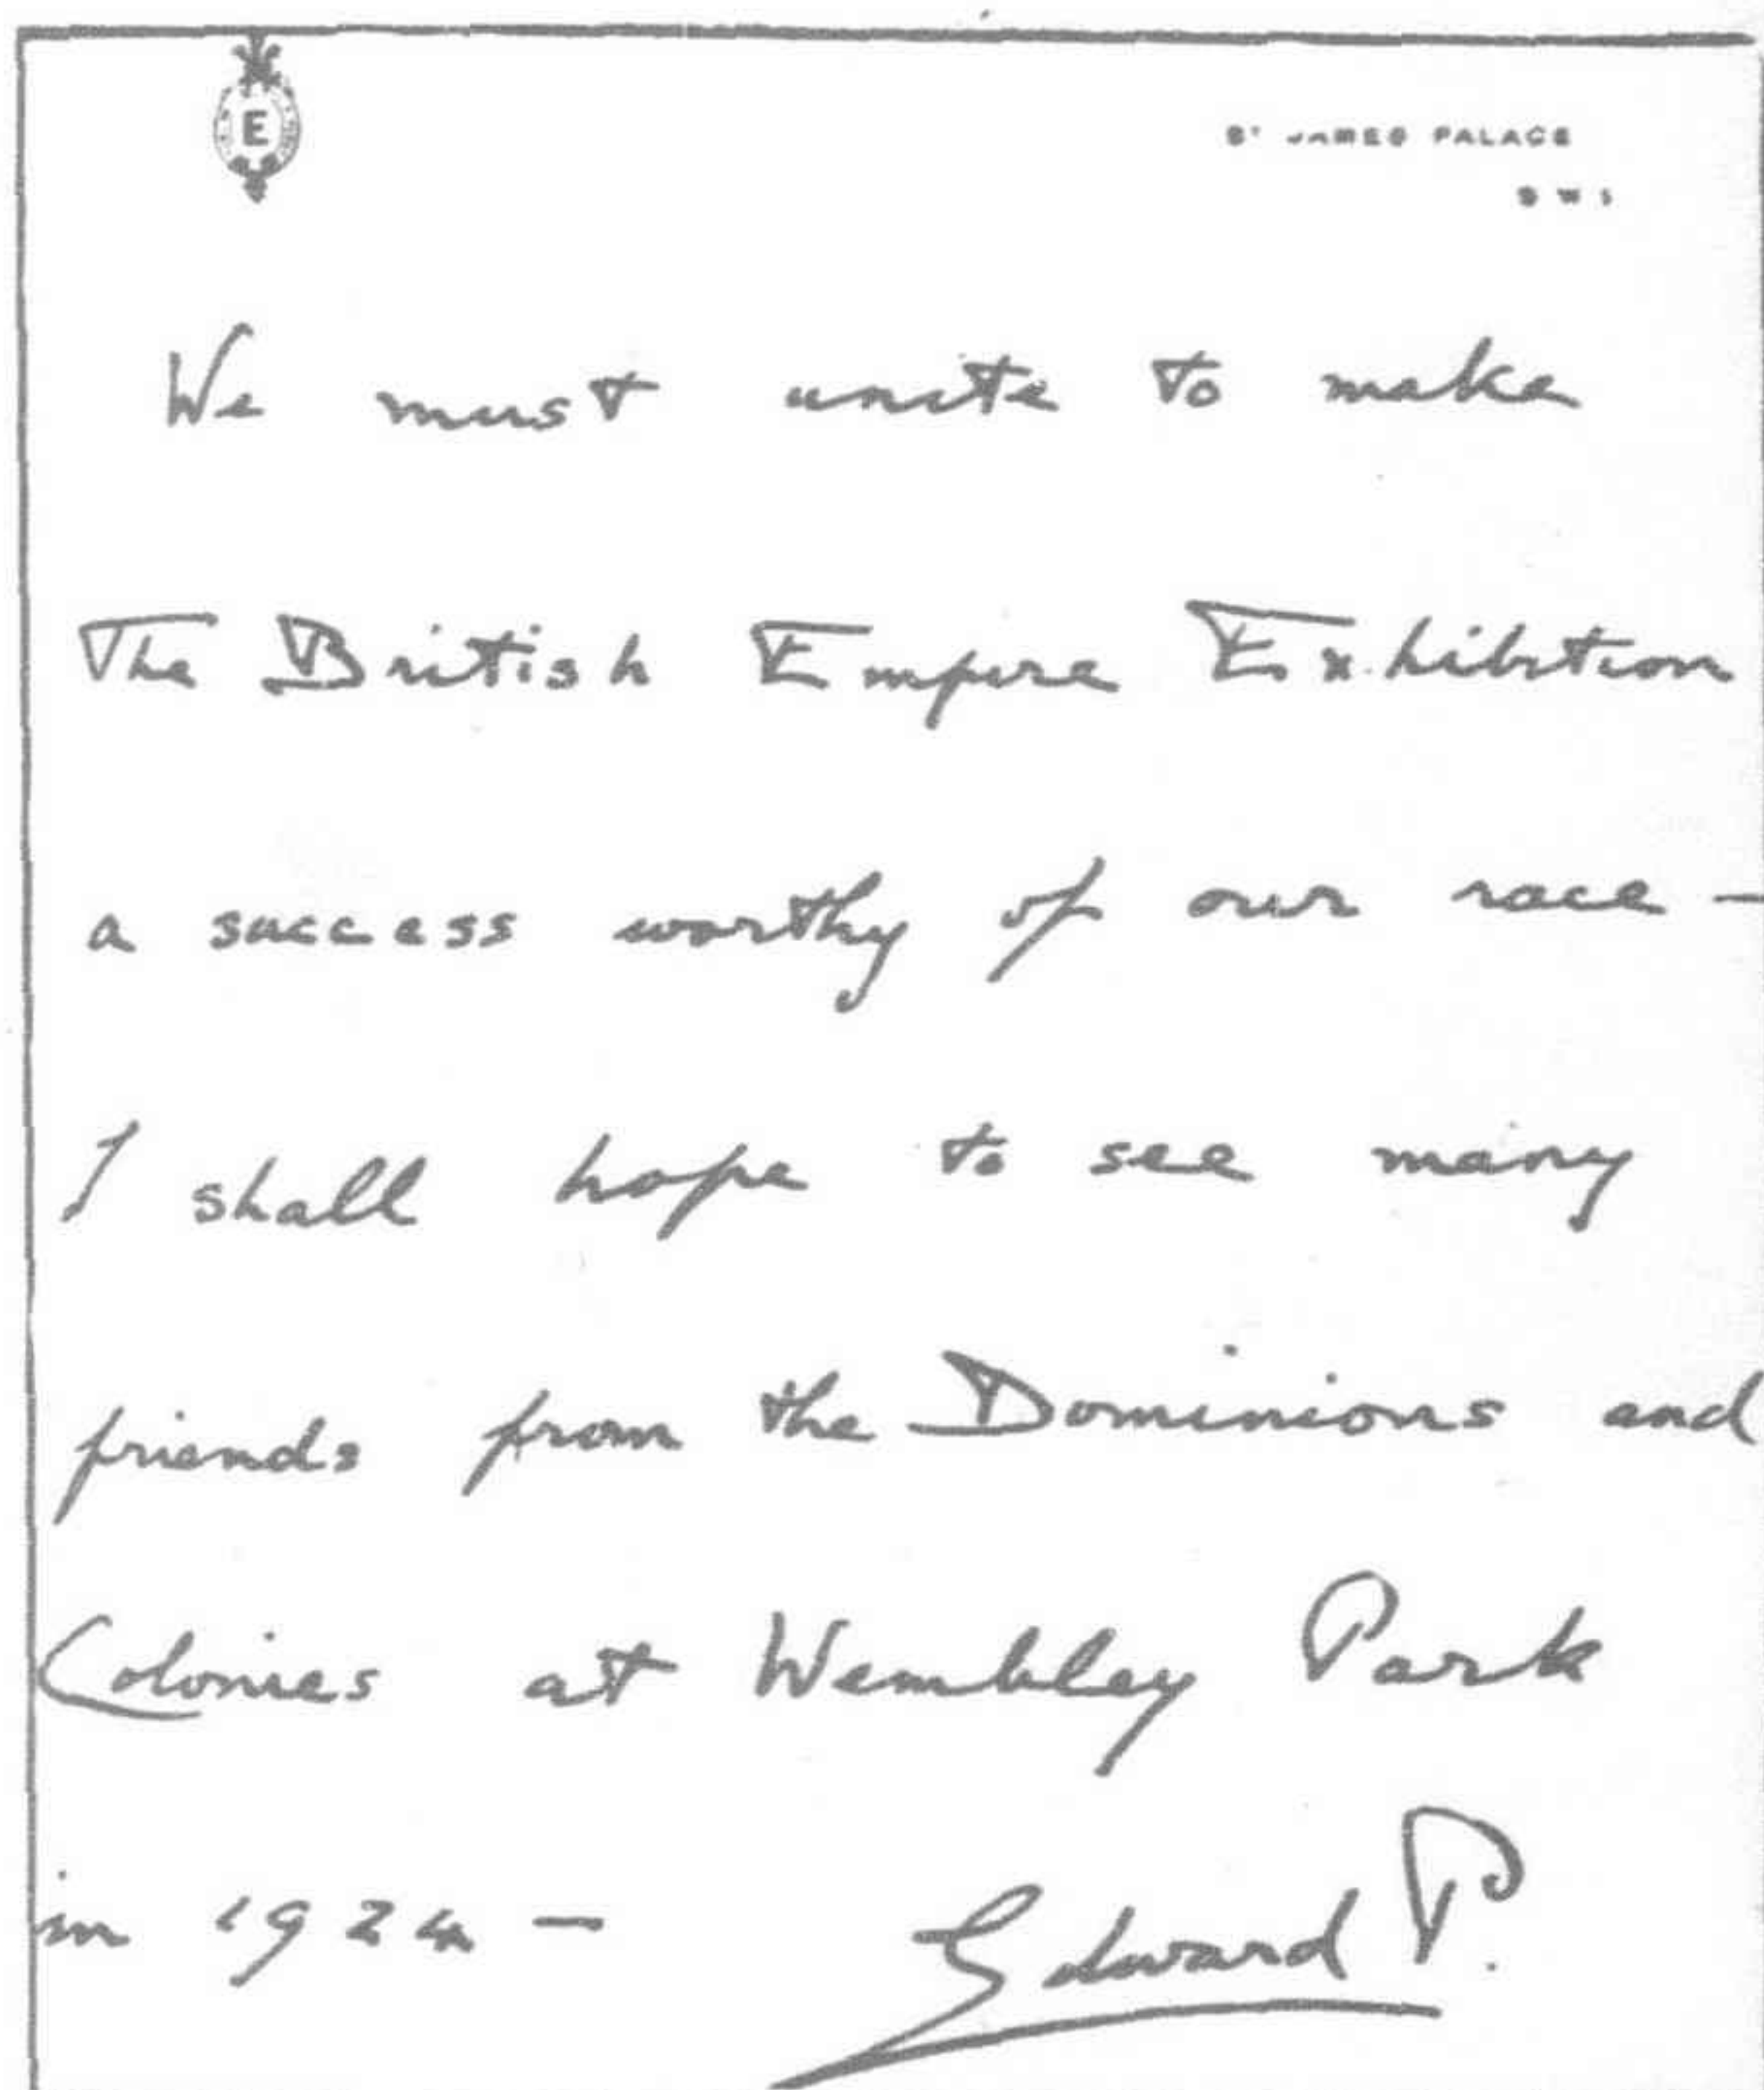 E
ST JAMES PALACE
S W 1
We must unite to make
The British Empire Exhibition
a success worthy of our race -
I shall hope to see many
friends from the Dominions and
Colonies at Wembley Park
in 1924 - Edward P.